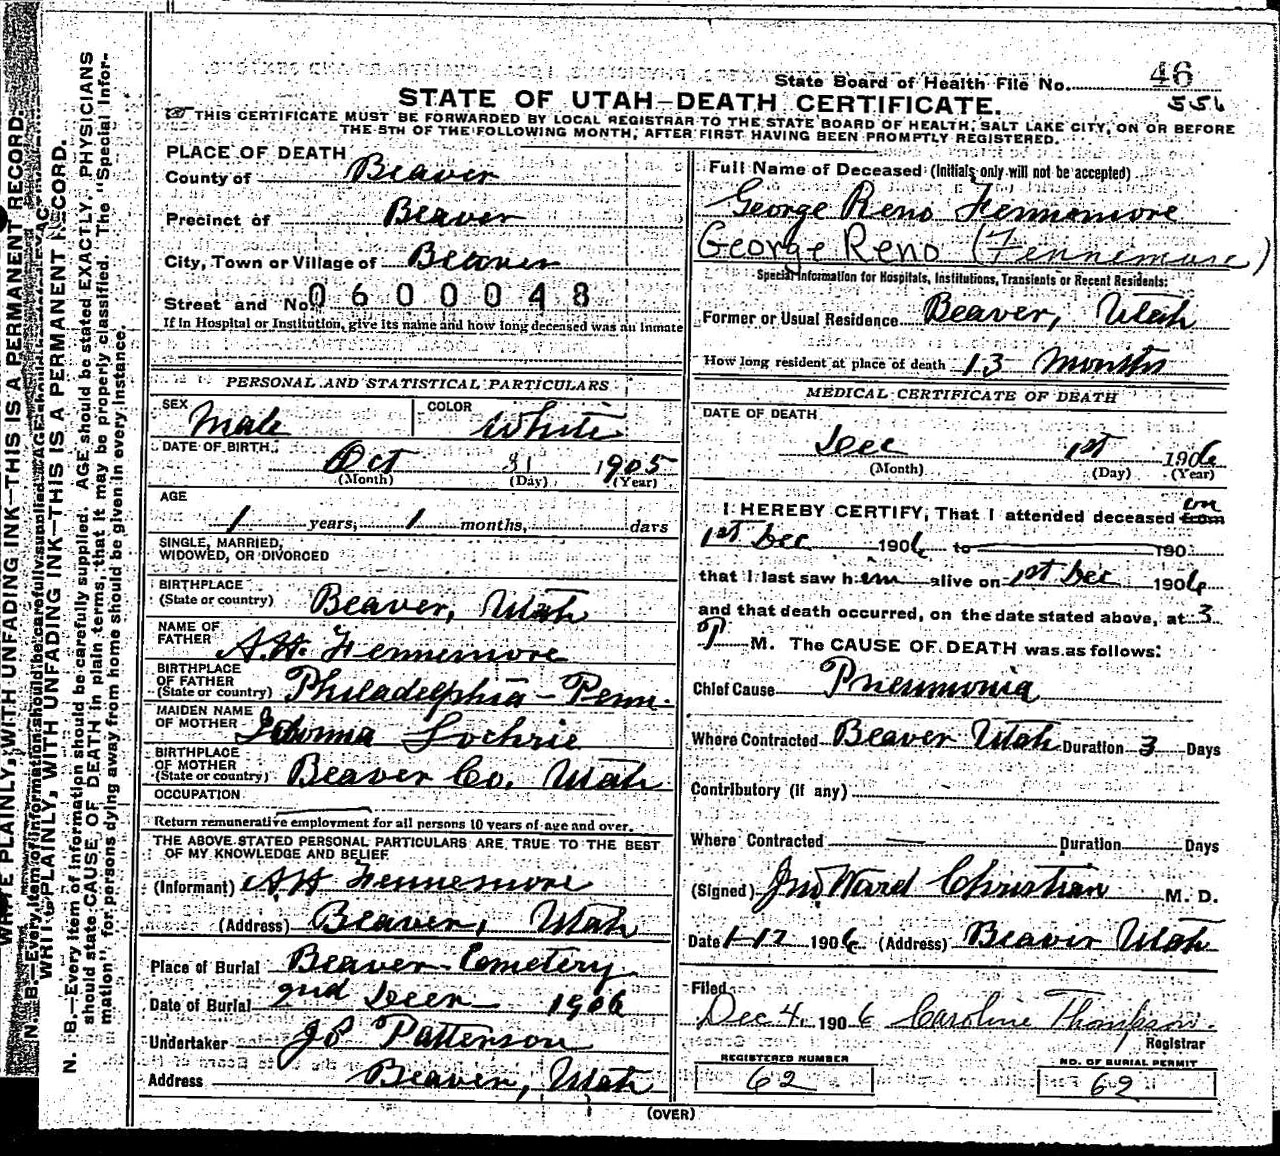 State Board of Health File No. 46
556
STATE OF UTAH—DEATH CERTIFICATE.
THIS CERTIFICATE MUST BE FORWARDED BY LOCAL REGISTRAR TO THE STATE BOARD OF HEALTH, SALT LAKE CITY, ON OR BEFORE
THE 5TH OF THE FOLLOWING MONTH, AFTER FIRST HAVING BEEN PROMPTLY REGISTERED.
PLACE OF DEATH
County of Beaver
Precinct of Beaver
City, Town or Village of Beaver
Street and No. 0600048
If in Hospital or Institution, give its name and how long deceased was an inmate
PERSONAL AND STATISTICAL PARTICULARS
SEX Male COLOR White
DATE OF BIRTH Oct 31 1905
(Month) (Day) (Year)
AGE
1 years, 1 months, days
SINGLE, MARRIED,
WIDOWED, OR DIVORCED
BIRTHPLACE
(State or country) Beaver, Utah
NAME OF
FATHER A.H. Fennemore
BIRTHPLACE
OF FATHER
(State or country) Philadelphia - Penn.
MAIDEN NAME
OF MOTHER Lochrie
BIRTHPLACE
OF MOTHER
(State or country) Beaver Co. Utah
OCCUPATION
Return remunerative employment for all persons 10 years of age and over.
THE ABOVE STATED PERSONAL PARTICULARS ARE TRUE TO THE BEST
OF MY KNOWLEDGE AND BELIEF
(Informant) A H Fennemore
(Address) Beaver, Utah
Place of Burial Beaver Cemetery
Date of Burial 2nd Decr 1906
Undertaker J P Patterson
Address Beaver, Utah
Full Name of Deceased (Initials only will not be accepted)
George Reno Fennemore
George Reno (Fennemore)
Special Information for Hospitals, Institutions, Transients or Recent Residents:
Former or Usual Residence Beaver, Utah
How long resident at place of death 13 Months
MEDICAL CERTIFICATE OF DEATH
DATE OF DEATH
Dec 1st 1906
(Month) (Day) (Year)
I HEREBY CERTIFY, That I attended deceased from on
1st Dec 1906 to 190
that I last saw him alive on 1st Dec 1906
and that death occurred, on the date stated above, at 3
P M. The CAUSE OF DEATH was as follows:
Chief Cause Pneumonia
Where Contracted Beaver Utah Duration 3 Days
Contributory (if any)
Where Contracted Duration Days
(Signed) Jno Ward Christian M. D.
Date 1-12 1906 (Address) Beaver Utah
Filed
Dec 4, 1906 Caroline Thompson.
Registrar
REGISTERED NUMBER
62
NO. OF BURIAL PERMIT
62
(OVER)
WRITE PLAINLY, WITH UNFADING INK—THIS IS A PERMANENT RECORD.
N. B.—Every item of information should be carefully supplied. AGE should be stated EXACTLY. PHYSICIANS
should state CAUSE OF DEATH in plain terms, that it may be properly classified. The "Special Infor-
mation" for persons dying away from home should be given in every instance.